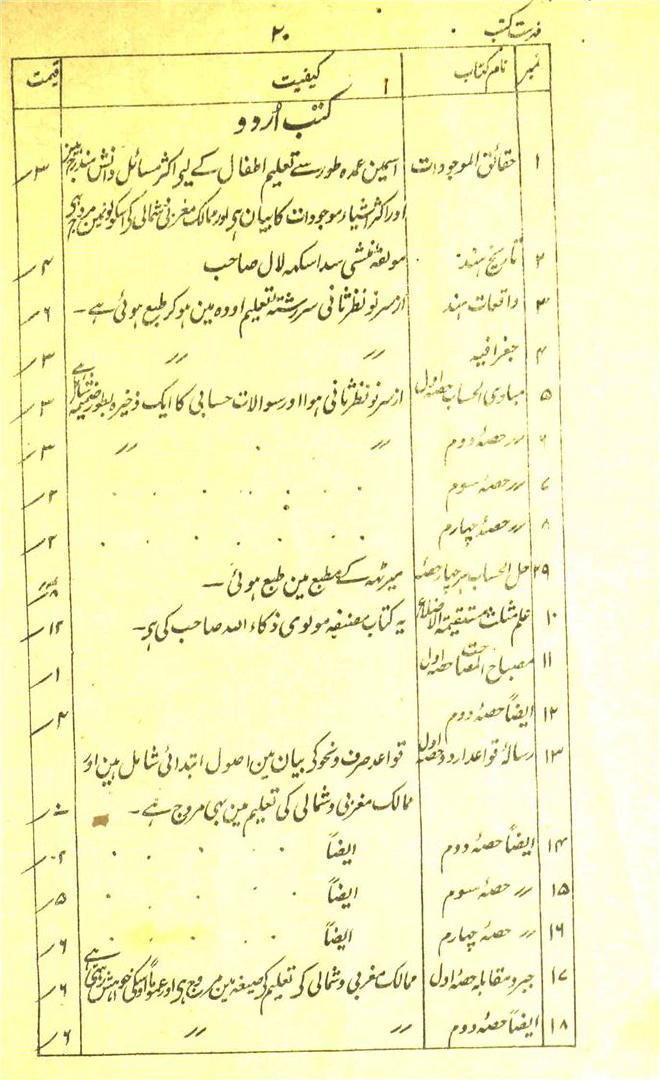 فہرست کتب ۲۰
نمبر نام کتاب کیفیت قیمت
کتب اُردو
۱ حقائق الموجودات اسمین عمدہ طور سے تعلیم اطفال کے لیے اکثر مسائل دانش مندرج ہین ۳؍
اور اکثر اشیار موجودات کا بیان ہی اور ممالک مغربی شمالی کے اسکولونمین مروج ہی
۲ تاریخ ہند مولفہ منشی سداسکھہ لال صاحب ۴؍
۳ واقعات ہند ازسرنو نظر ثانی سررشتہ تعلیم اودہ مین ہوکر طبع ہوئی ہے ۔ ۶؍
۴ جغرافیہ ؍؍ ؍؍ ۳؍
۵ مبادی الحساب حصہ اول ازسرنو نظر ثانی ہوا اور سوالات حسابی کا ایک ذخیرہ بطور ضمیمہ ہے ۳؍
۶ ؍؍ حصہ دوم ؍؍ ؍؍ ۳؍
۷ ؍؍ حصہ سوم ۲؍
۸ ؍؍ حصہ چہارم ۲؍
۲۹ حل الحساب ہر چہار حصہ میرٹھہ کے مطبع مین طبع ہوئی ۔
۱۰ علم مثلث مستقیمۃ الاضلاع یہ کتاب مصنفہ مولوی ذکاء اللہ صاحب کی ہی ۔ ۱۲؍
۱۱ مصباح المساحت حصہ اول ۱؍
۱۲ ایضاً حصہ دوم ۲؍
۱۳ رسالۂ قواعد اردو حصہ اول قواعد صرف ونحو کی بیان مین اصول ابتدائی شامل ہین اور
ممالک مغربی وشمالی کی تعلیم مین بھی مروج ہے ۔
۱۴ ایضاً حصہ دوم ایضاً ۲؍
۱۵ ؍؍ حصہ سوم ایضاً ۵؍
۱۶ ؍؍ حصہ چہارم ایضاً ۶؍
۱۷ جبرومقابلہ حصہ اول ممالک مغربی وشمالی کے تعلیم کے صیغہ مین مروج ہی اور عموماً اوسکی خواہش رہتی ہے ۶؍
۱۸ ایضاً حصہ دوم ؍؍ ؍؍ ۶؍